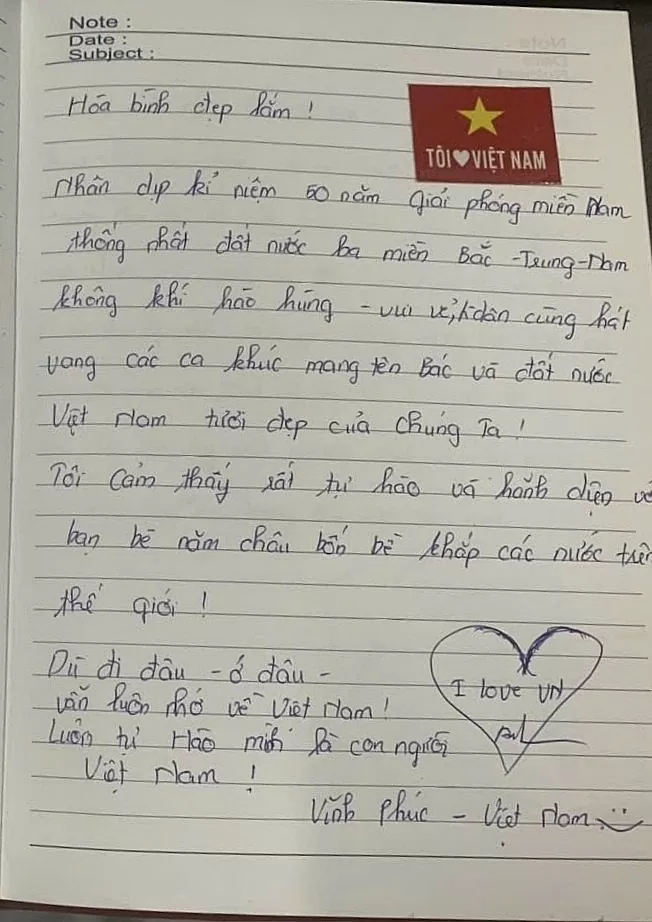 Note :
Date :
Subject :
Hòa bình đẹp lắm !
TÔI ♥ VIỆT NAM
Nhân dịp kỉ niệm 50 năm giải phóng miền Nam
thống nhất đất nước ba miền Bắc - Trung - Nam
không khí hào hùng - vui vẻ, dân cùng hát
vang các ca khúc mang tên Bác và đất nước
Việt Nam tươi đẹp của chúng Ta !
Tôi Cảm thấy rất tự hào và hãnh diện về
bạn bè năm châu bốn bể khắp các nước trên
thế giới !
Dù đi đâu - ở đâu -
vẫn luôn nhớ về Việt Nam !
Luôn tự Hào mình là con người
Việt Nam !
I love VN
Vĩnh Phúc - Việt Nam